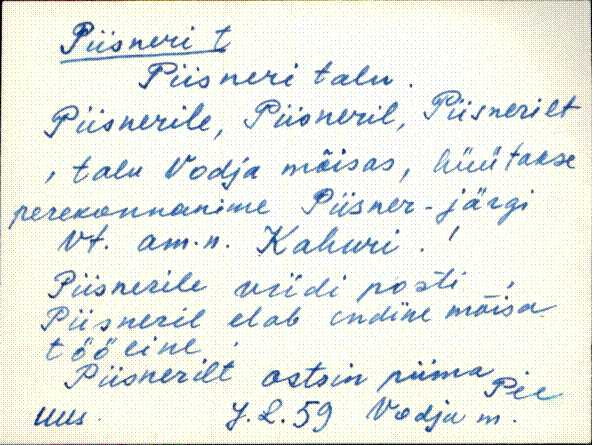 Piisneri t
Piisneri talu.
Piisnerile, Piisneril, Piisnerilt
, talu Vodja mõisas, hüütakse
perekonnanime Piisner-järgi
Vt. am.n. Kahuri.!
Piisnerile viidi posti,
Piisneril elab endine mõisa
tööline.
Piisnerilt ostsin piima
Pee
uus. J.L.59 Vodja m.